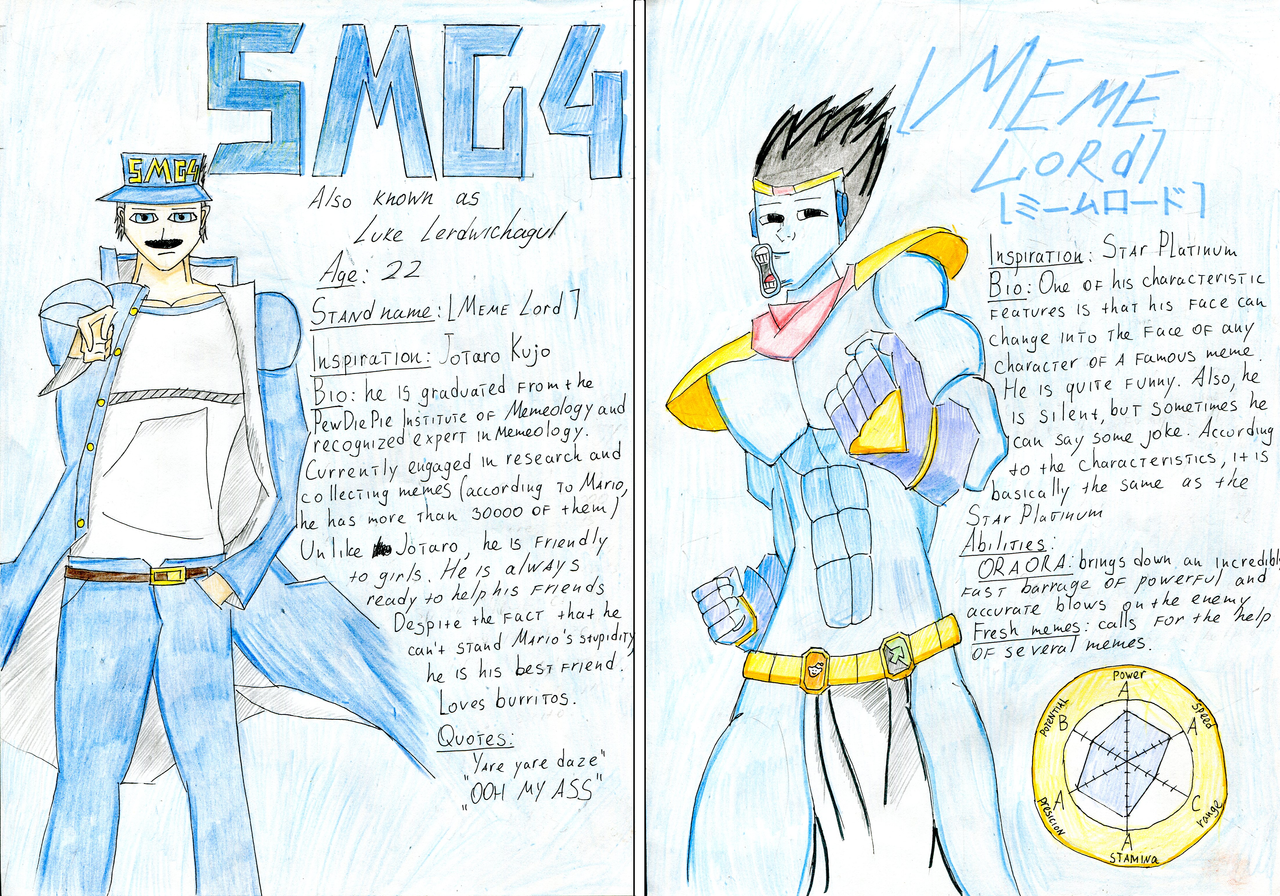 SMG4
SMG4
Also known as
Luke Lerdwichagul
Age: 22
Stand name: [Meme Lord]
Inspiration: Jotaro Kujo
Bio: he is graduated from the
PewDiePie Institute of Memeology and
recognized expert in Memeology.
Currently engaged in research and
collecting memes (according to Mario,
he has more than 30000 of them)
Unlike Jotaro, he is friendly
to girls. He is always
ready to help his friends
Despite the fact that he
can't stand Mario's stupidity
he is his best friend.
Loves burritos.
Quotes:
"Yare yare daze"
"OOH MY ASS"
[Meme
Lord]
[ミームロード]
Inspiration: Star Platinum
Bio: One of his characteristic
features is that his face can
change into the face of any
character of a famous meme.
He is quite funny. Also, he
is silent, but sometimes he
can say some joke. According
to the characteristics, it is
basically the same as the
Star Platinum
Abilities:
ORAORA: brings down an incredibly
fast barrage of powerful and
accurate blows on the enemy
Fresh memes: calls for the help
of several memes.
Power
A
Speed
A
C
range
A
STAMINA
A
presicion
B
Potential